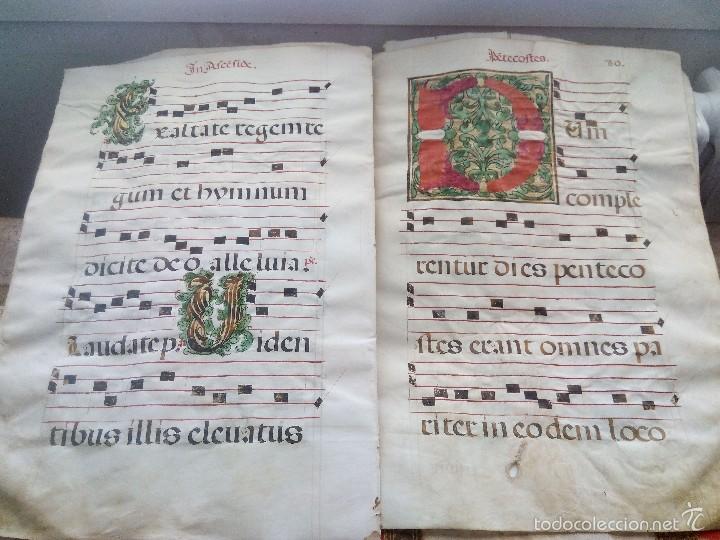 In Ascēsiōe.
Exaltate regem re
gum et hymnum
dicite deo alleluia. ps.
Laudate p. Viden
tibus illis eleuatus
Pētecostes. 80.
Dum
comple
rentur dies penteco
stes erant omnes pa
riter in eodem loco
todocoleccion.net